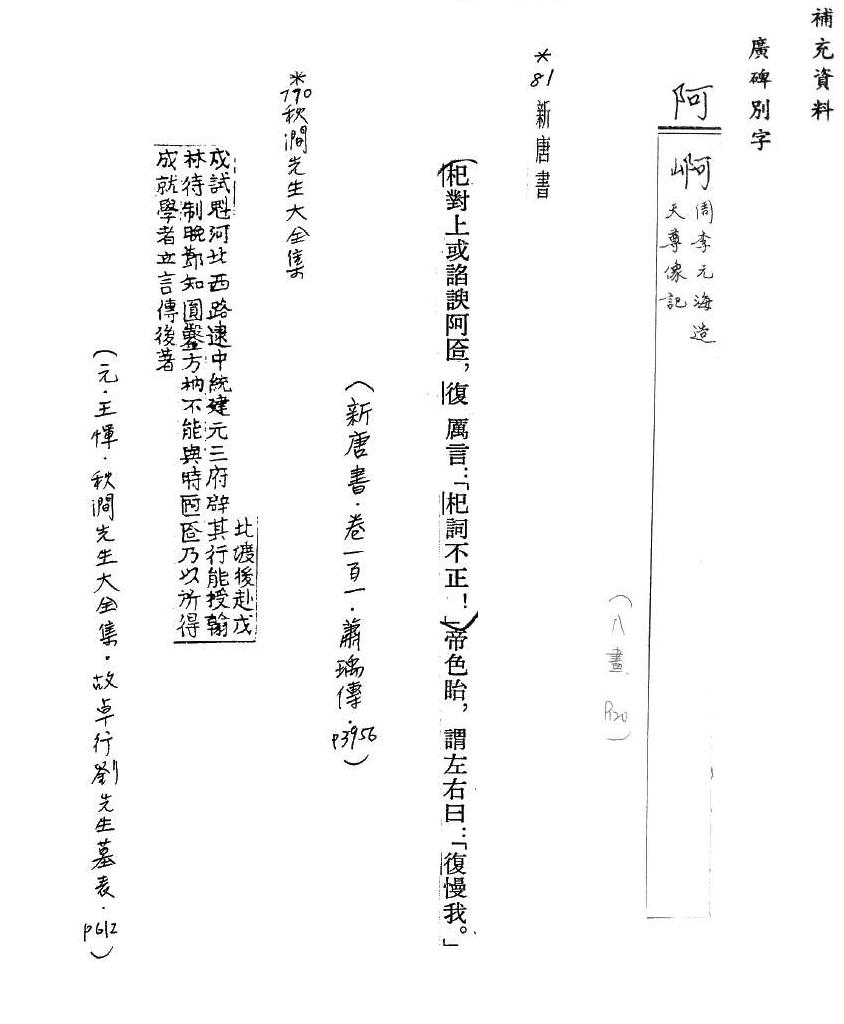 補充資料
廣碑別字
阿
𡶐 周李元海造
天尊像記
(八畫 P120)
*81 新唐書
(杞對上或諂諛阿匼，復厲言：「杞詞不正！」)帝色眙，謂左右曰：「復慢我。」
(新唐書·卷一百一·蕭瑀傳·p3956)
*790 秋澗先生大全集
北渡後赴戊
戌試魁河北西路逮中統建元三府辟其行能授翰
林待制晚節知圓鑿方枘不能與時匼乃以所得
成就學者立言傳後著
(元·王惲·秋澗先生大全集·故卓行劉先生墓表·p612)